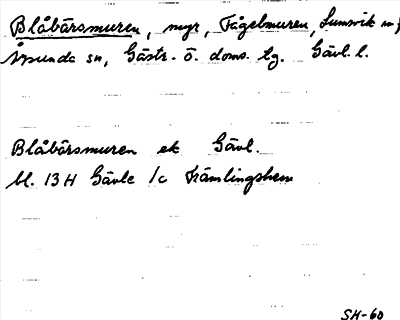 Blåbärsmuren, myr, Fågelmuren, Lumsvik
Årsunda sn, Gästr. ö. doms. tg. Gävl. l.
Blåbärsmuren ek Gävl.
bl. 13 H Gävle 1c Främlingshem
SH-60